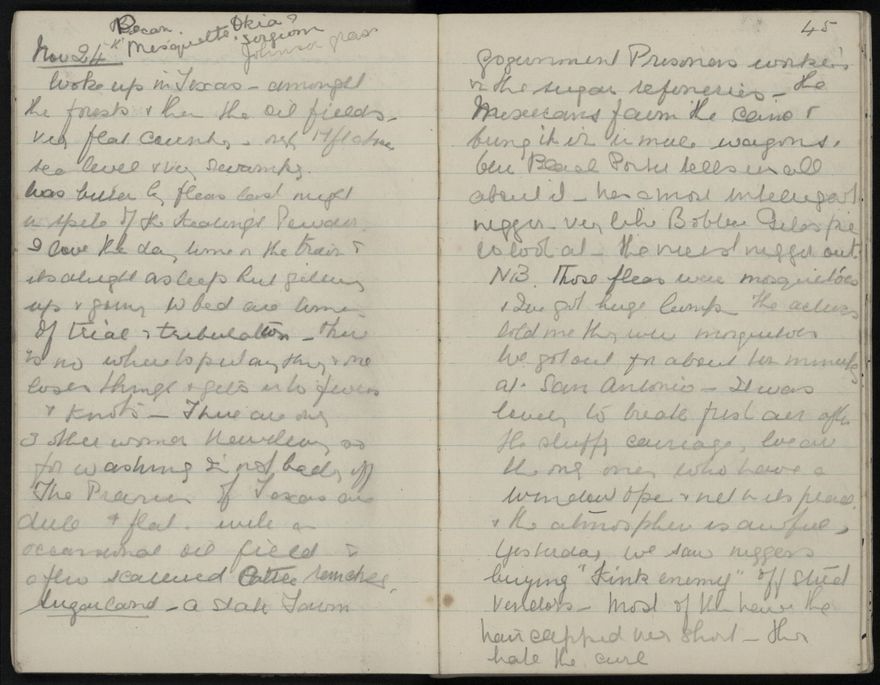 Pecan. Okia?
Nov 24th Mesquette. Sorgum
Johnson grass
Woke up in Texas - amongst
the forests & then the oil fields -
very flat country - only 17 ft above
sea level & very swampy.
Was bitten by fleas last night
in spite of the Keatings Powder.
I love the day time in the train &
its alright asleep but getting
up & going to bed are times
of trial & tribulation - there
is no where to put anything & one
loses things & gets into fevers
& knots - There are only
3 other women travelling so
for washing I'm not badly off
The Prairies of Texas are
dull & flat. with an
occasional oil field &
often scattered Cattle ranches.
Sugarland - a State Farm
45
government Prisoners work
in the sugar refineries - the
Mexicans farm the cane &
bring it in in mule wagons.
Our Black Porter tells us all
about it - hes a most intelligent
nigger very like Bobbie Gillespie
to look at - the nicest nigger out.
NB. Those fleas were mosquitoes
& Ive got huge lumps The actress
told me they were mosquitoes
We got out for about ten minutes
at San Antonio - It was
lovely to breathe fresh air after
the stuffy carriage, we are
the only ones who have a
window open & net in its place.
& the atmosphere is awful,
Yesterday we saw niggers
buying "Kink enemy" off street
vendors - Most of them have the
hair cropped very short - they
hate the curl